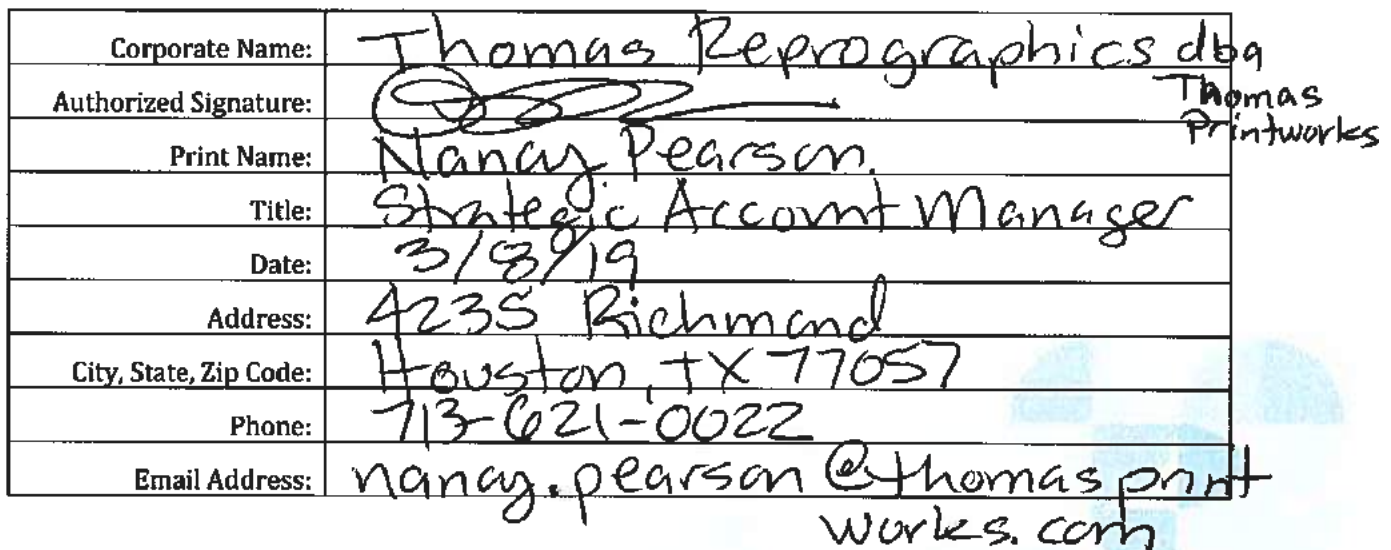 Corporate Name: Thomas Reprographics dba
Thomas
Printworks
Authorized Signature:
Print Name: Nancy Pearson
Title: Strategic Account Manager
Date: 3/8/19
Address: 4235 Richmond
City, State, Zip Code: Houston, TX 77057
Phone: 713-621-0022
Email Address: nancy.pearson@thomasprint
works.com